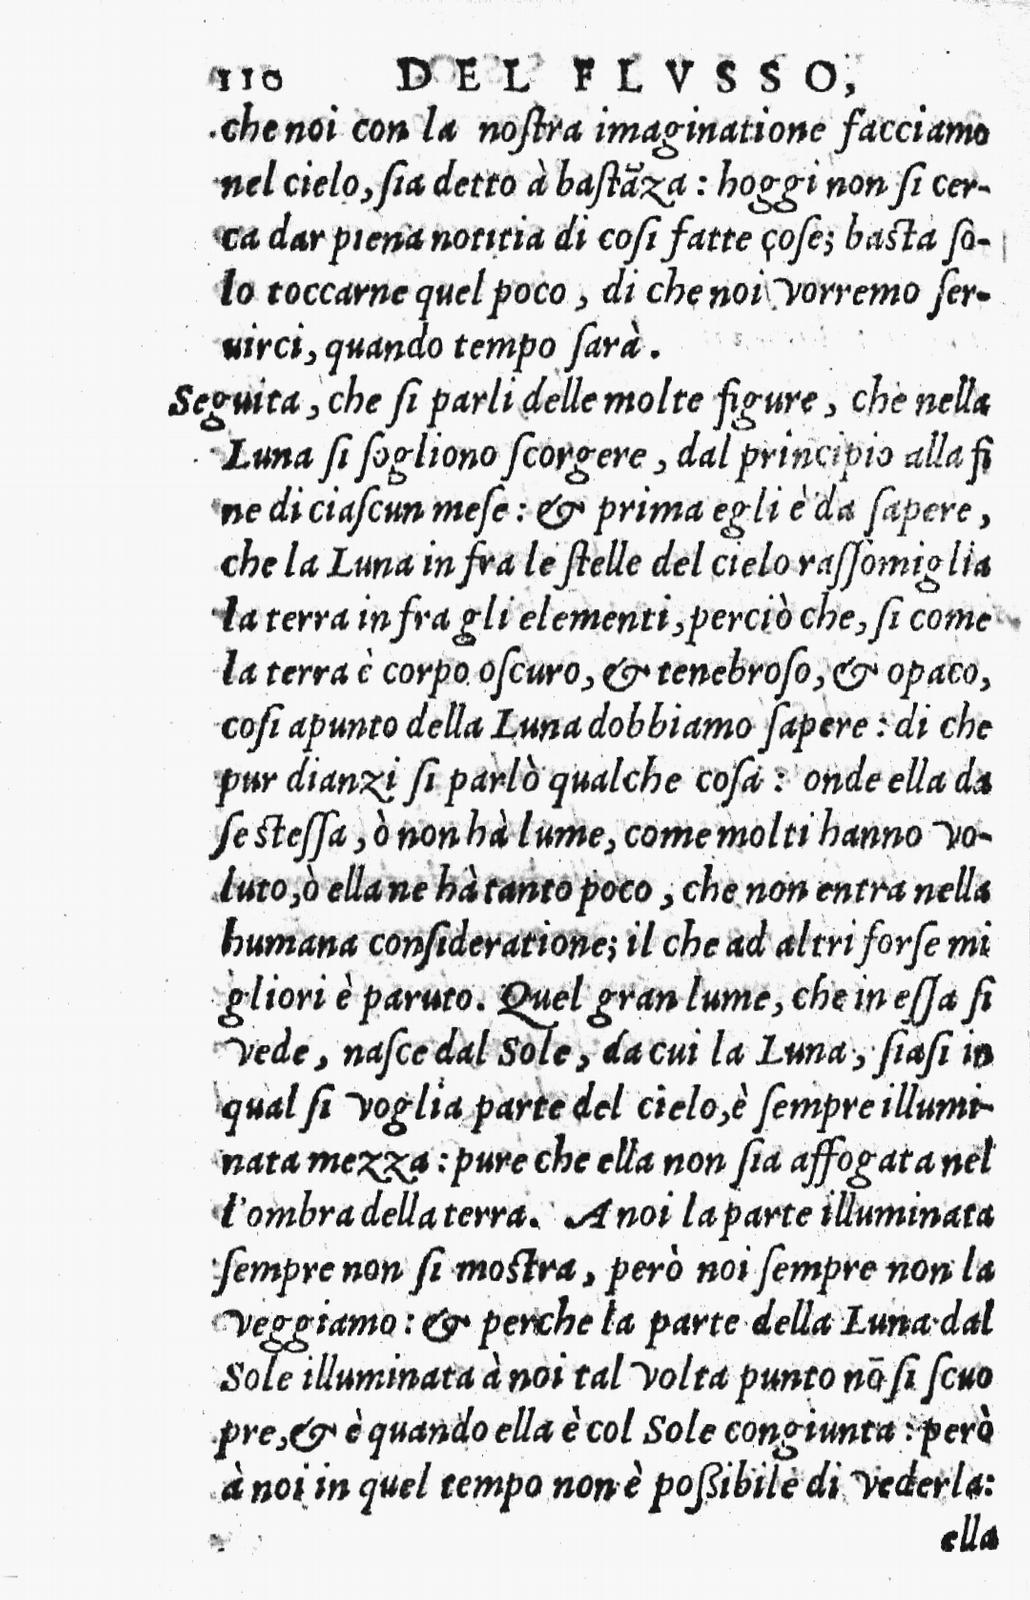 110 DEL FLVSSO,
che noi con la noſtra imaginatione facciamo
nel cielo, ſia detto à baſtãza : hoggi non ſi cer-
ca dar piena notitia di coſi fatte çoſe; baſta ſo-
lo toccarne quel poco , di che noi vorremo ſer-
uirci, quando tempo ſarà .
Seguita , che ſi parli delle molte figure , che nella
Luna ſi ſogliono ſcorgere , dal principio alla fi
ne di ciaſcun meſe : & prima egli è da ſapere ,
che la Luna in fra le ſtelle del cielo raſſomiglia
la terra in fra gli elementi, perciò che, ſi come
la terra è corpo oſcuro, & tenebroſo, & opaco,
coſi apunto della Luna dobbiamo ſapere : di che
pur dianzi ſi parlò qualche coſa : onde ella da
ſe ſteſſa , ò non hà lume, come molti hanno vo-
luto, ò ella ne hà tanto poco , che non entra nella
humana conſideratione; il che ad altri forſe mi
gliori è paruto. Quel gran lume, che in eſſa ſi
vede , naſce dal Sole , da cui la Luna , ſiaſi in
qual ſi voglia parte del cielo, è ſempre illumi-
nata mezza : pure che ella non ſia affogata nel
l'ombra della terra. A noi la parte illuminata
ſempre non ſi moſtra , però noi ſempre non la
veggiamo : & perche la parte della Luna dal
Sole illuminata à noi tal volta punto nõ ſi ſcuo
pre, & è quando ella è col Sole congiunta : però
à noi in quel tempo non è poſſibile di vederla:
ella